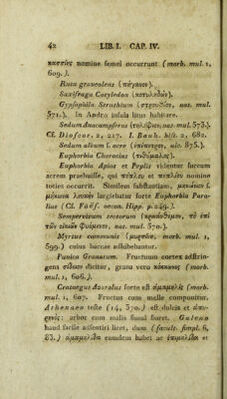 42 LIB. I. CAP. IV.
nomine semel occurrunt (morb. mul. 1,
609.).
Ruta graveolens (πήγανον).
Saxifraga Cotyledon (κοτυληδών).
Gypsophila Struthium (στρουθίον, nat. mul.
571.). In Andro insula litus habitare.
Sedum Anacampseros (nat. mul. 573.).
Cf. Dioscor. 2, 217. I. Bauh. hist. 2, 682.
Sedum album s. acre (ulc. 875.).
Euphorbia Characias (τιθύμαλος).
Euphorbia Apios et Peplis videntur succum
acrem praebuisse, qui πέπλιον et πεπλίου nomine
toties occurrit. Similem substantiam,
largiebatur forte Euphorbia Para-
lias (Cl. Foës. oecon. Hipp. p. 249.).
Sempervivum tectorum τὸ ἐπὶ
nat. mul. 570.).
Myrtus communis morb. mul. 1,
599.) cuius baccae adhibebantur.
Punica Granatum. Fructuum cortex adstrin-
gens σίδιον dicitur, grana vero κόκκωνες (morb.
mul. 1, 606.).
Crataegus Azarolus forte est ἀμαμηλὶς (morb.
mul. 1, 607. Fructus cum melle componitur.
Athenaeo teste (14, 370.) est dulcis et
arbor cum malis simul floret. Galeno
haud facile assentiri licet, dum (facult. simpl. 6,
23.) eandem habet ac et